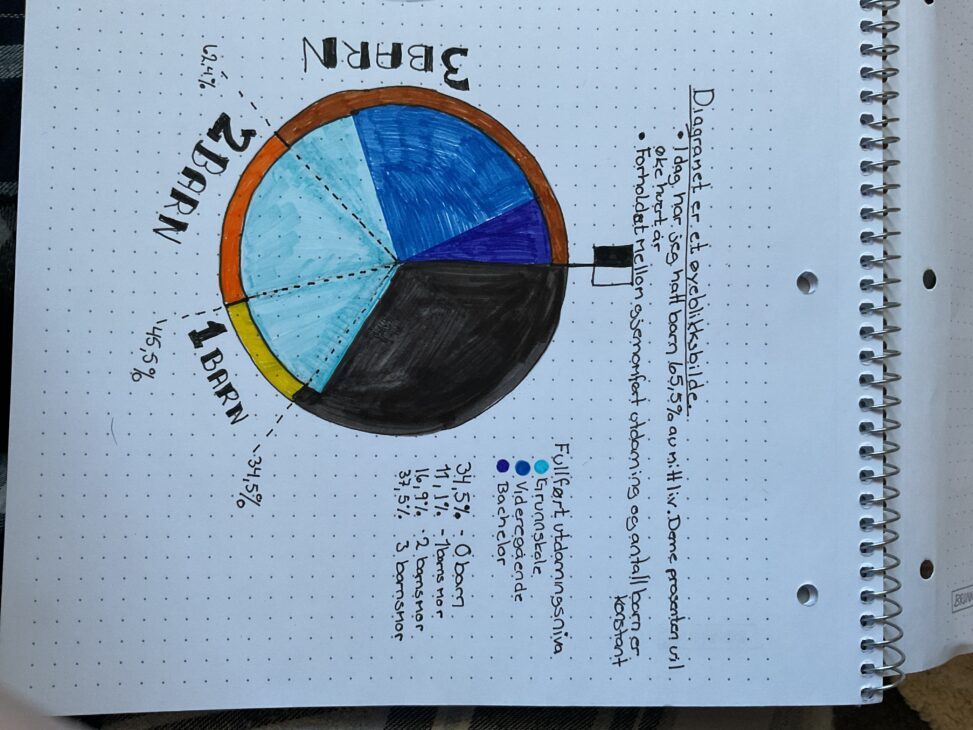 Diagramet er et øyeblikksbilde.
• I dag har jeg hatt barn 65,5% av mitt liv. Denne prosenten vil
øke hvert år
• Forholdet mellom gjenomført utdanning og antall barn er
konstant
3 BARN
62,4%
2 BARN
45,5%
1 BARN
34,5%
Fullført utdanningsnivå
Grunnskole
Videregående
Bachelor
34,5% - 0 barn
11,1% - 1barnsmor
16,9% - 2 barnsmor
37,5% 3 barnsmor